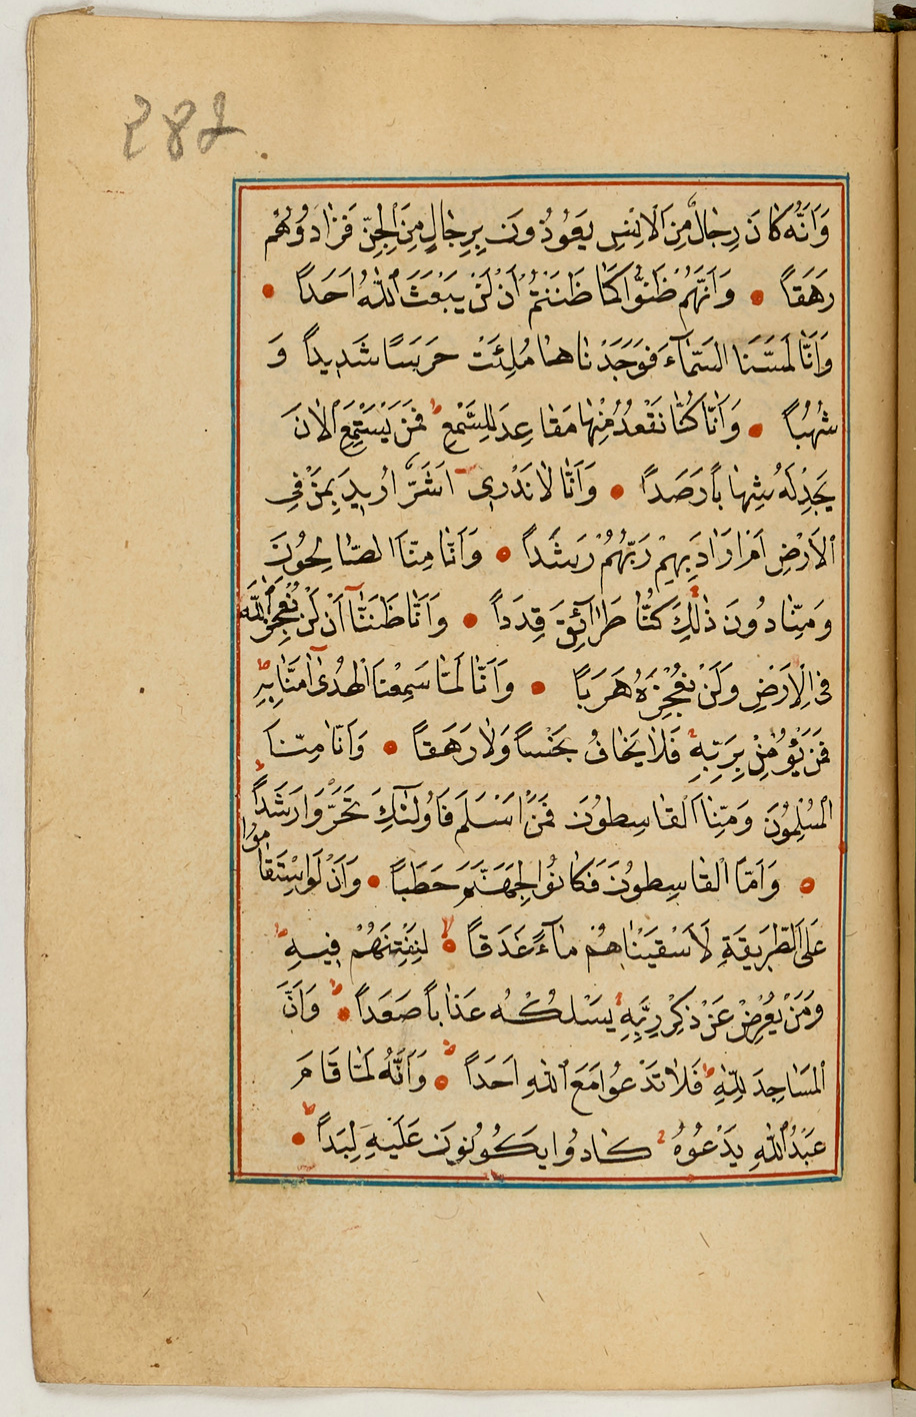 282
وَاَنَّهُ كَانَ رِجَالٌ مِنَ الْاِنْسِ يَعُوذُونَ بِرِجَالٍ مِنَ الْجِنِّ فَزَادُوهُمْ
رَهَقاً وَاَنَّهُمْ ظَنُّوا كَمَا ظَنَنْتُمْ اَنْ لَنْ يَبْعَثَ اللّٰهُ اَحَداً
وَاَنَّا لَمَسْنَا السَّمَآءَ فَوَجَدْنَاهَا مُلِئَتْ حَرَسًا شَدِيداً وَ
شُهُباً وَاَنَّا كُنَّا نَقْعُدُ مِنْهَا مَقَاعِدَ لِلسَّمْعِ فَمَنْ يَسْتَمِعِ الْاٰنَ
يَجِدْ لَهُ شِهَاباً رَصَداً وَاَنَّا لَا نَدْرِي اَشَرٌّ اُرِيدَ بِمَنْ فِي
الْاَرْضِ اَمْ اَرَادَ بِهِمْ رَبُّهُمْ رَشَداً وَاَنَّا مِنَّا الصَّالِحُونَ
وَمِنَّا دُونَ ذٰلِكَ كُنَّا طَرَآئِقَ قِدَداً وَاَنَّا ظَنَنَّا اَنْ لَنْ نُعْجِزَ اللّٰهَ
فِي الْاَرْضِ وَلَنْ نُعْجِزَهُ هَرَباً وَاَنَّا لَمَّا سَمِعْنَا الْهُدٰى اٰمَنَّا بِهِ
فَمَنْ يُؤْمِنْ بِرَبِّهِ فَلَا يَخَافُ بَخْساً وَلَا رَهَقاً وَاَنَّا مِنَّا
الْمُسْلِمُونَ وَمِنَّا الْقَاسِطُونَ فَمَنْ اَسْلَمَ فَاُولٰئِكَ تَحَرَّوْا رَشَداً
وَاَمَّا الْقَاسِطُونَ فَكَانُوا لِجَهَنَّمَ حَطَباً وَاَنْ لَوِ اسْتَقَامُوا
عَلَى الطَّرِيقَةِ لَاَسْقَيْنَاهُمْ مَآءً غَدَقاً لِنَفْتِنَهُمْ فِيهِ
وَمَنْ يُعْرِضْ عَنْ ذِكْرِ رَبِّهِ يَسْلُكْهُ عَذَاباً صَعَداً وَاَنَّ
الْمَسَاجِدَ لِلّٰهِ فَلَا تَدْعُوا مَعَ اللّٰهِ اَحَداً وَاَنَّهُ لَمَّا قَامَ
عَبْدُ اللّٰهِ يَدْعُوهُ كَادُوا يَكُونُونَ عَلَيْهِ لِبَداً